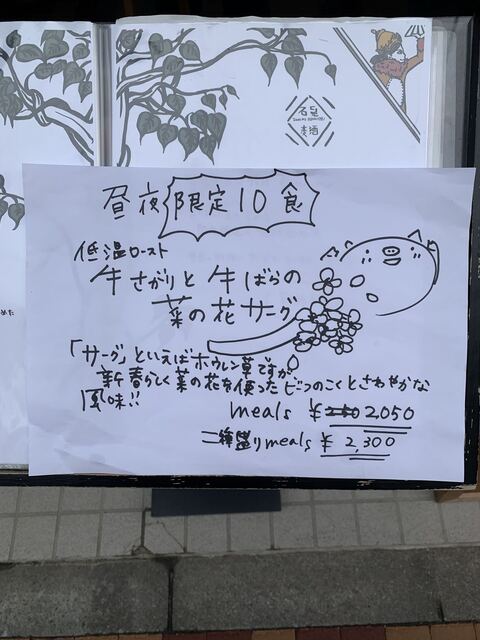 昼夜 限定10食
低温ロースト
牛さがりと牛ばらの
菜の花サーグ
「サーグ」といえばホウレン草ですが、
新春らしく菜の花を使ったビーフのこくとさわやかな
風味!!
meals ¥2050
二種盛りmeals ¥2,300